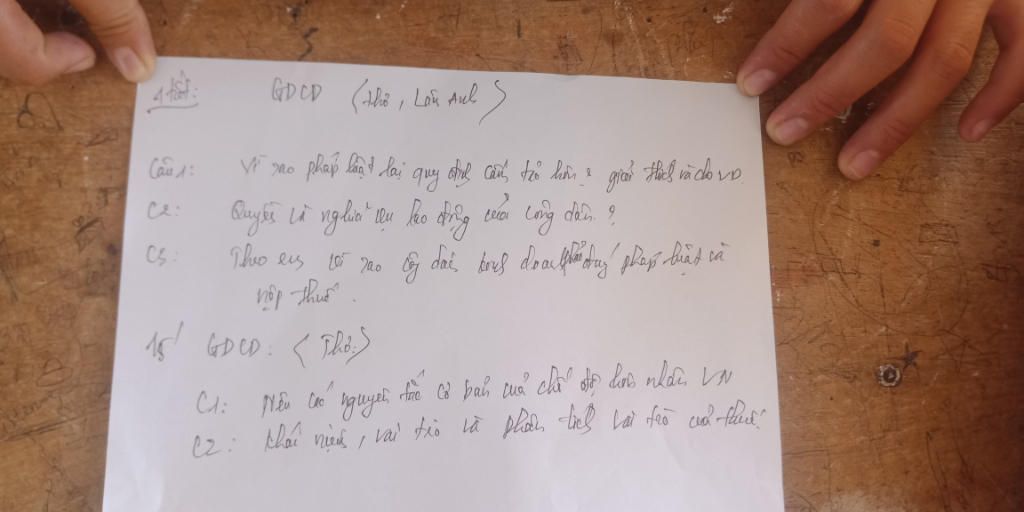 1 tiết: GDCD (Thơ, Lan Anh)
Câu 1: Vì sao pháp luật lại quy định cấm tảo hôn? giải thích và cho VD.
C2: Quyền và nghĩa vụ lao động của công dân?
C3: Theo em vì sao công dân kinh doanh phải đúng pháp luật và
nộp thuế.
15' GDCD: (Thơ)
C1: Nêu các nguyên tắc cơ bản của chế độ hôn nhân VN
C2: khái niệm, vai trò và phân tích vai trò của thuế.